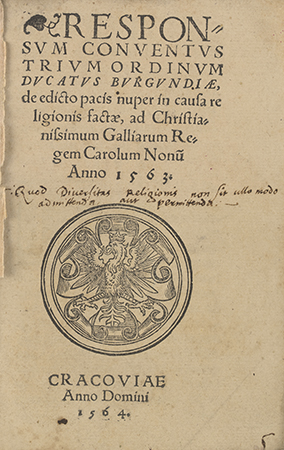 RESPON-
SVM CONVENTVS
TRIVM ORDINVM
DVCATVS BVRGVNDIÆ,
de edicto pacis nuper in causa re
ligionis factæ, ad Christia-
nissimum Galliarum Re-
gem Carolum Nonũ
Anno 1563.
Quod Diversitas Religionis non sit ullo modo
admittenda aut permittenda.
CRACOVIAE
Anno Domini
1564.